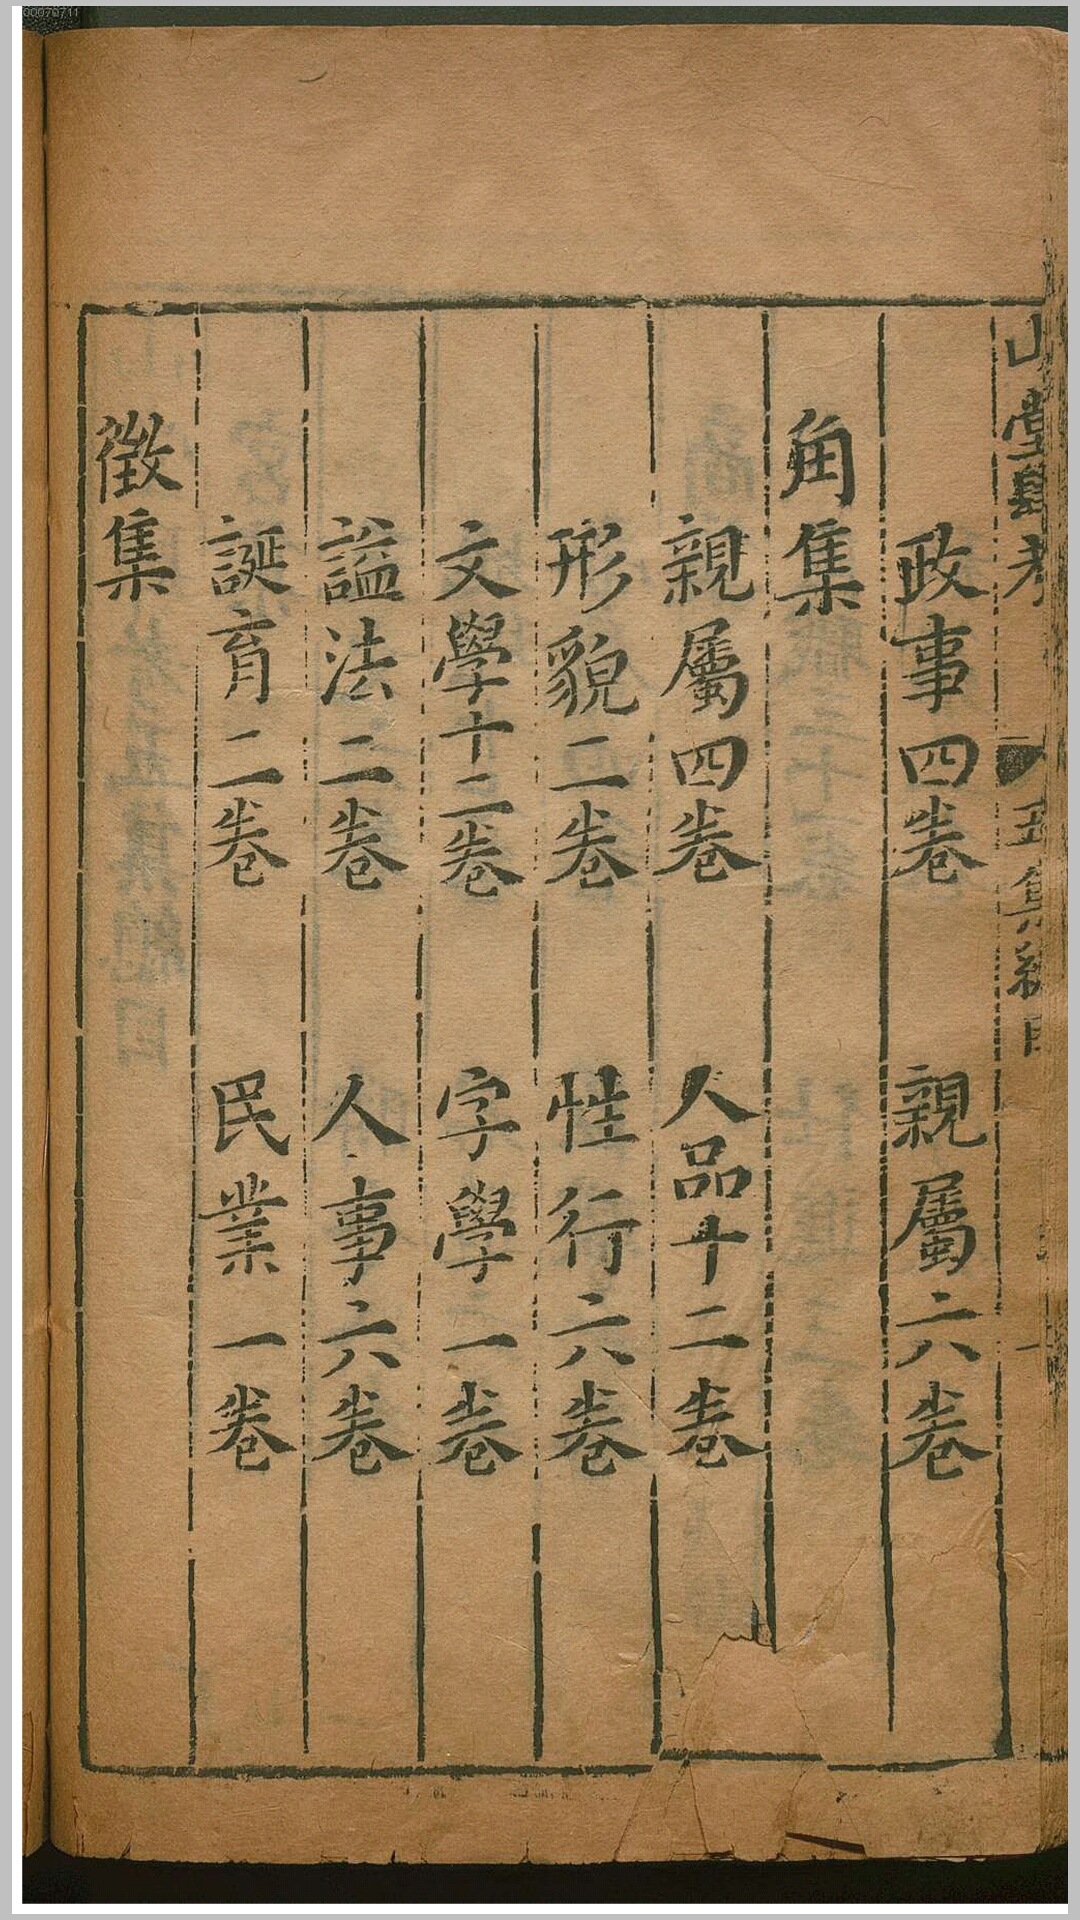 00070711
山堂肆考
五集總目
政事四卷　親屬六卷
角集
親屬四卷　人品十二卷
形貌二卷　性行六卷
文學十二卷　字學一卷
謚法二卷　人事六卷
誕育二卷　民業一卷
徵集